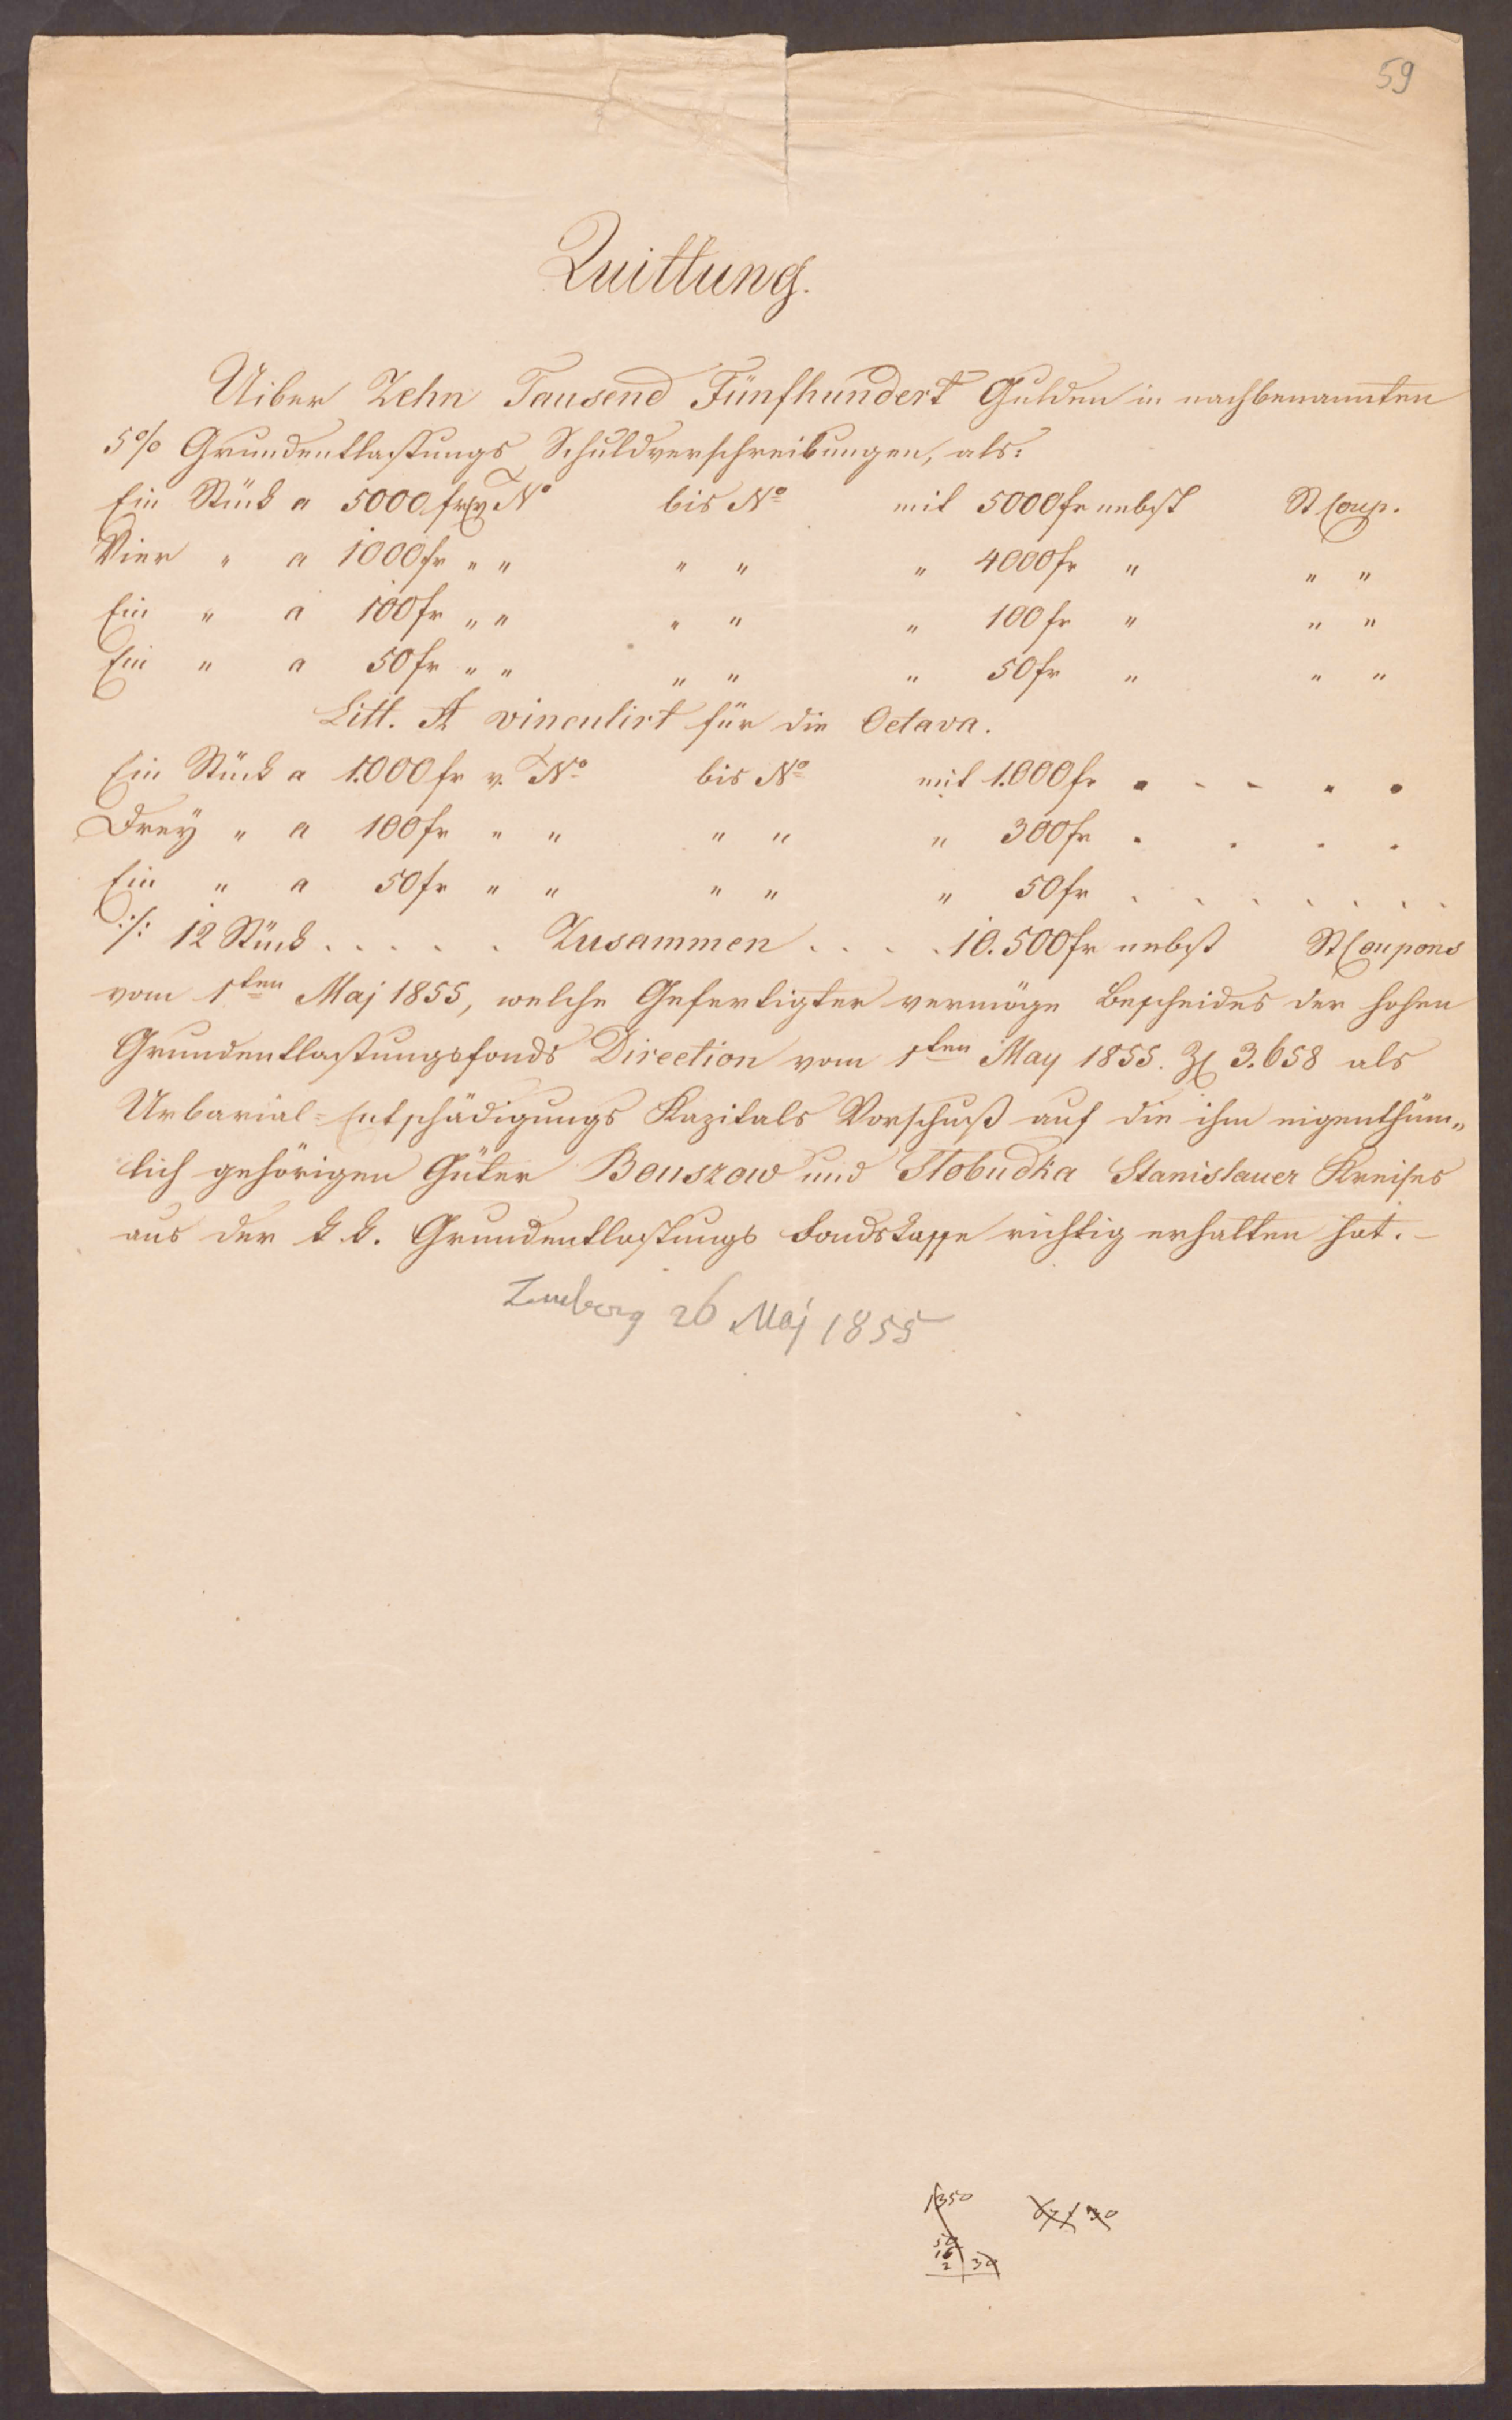 59
Quittung.
Uiber Zehn Tausend Fünfhundert Gulden in nachbenannten
5% Grundentlastungs Schuldverschreibungen, als:
Ein Stück a 5000 fr v. No bis No mit 5000 fr nebst St Coup.
Vier " a 1000 fr " " " " " 4000 fr " " "
Ein " a 100 fr " " " " " 100 fr " " "
Ein " a 50 fr " " " " " 50 fr " " "
Litt. A vinculirt für die Octava.
Ein Stück a 1.000 fr v. No bis No mit 1.000 fr . . . . .
Drey " a 100 fr " " " " " 300 fr . . . .
Ein " a 50 fr " " " " " 50 fr . . . . . . .
./: 12 Stück . . . . . Zusammen . . . . 10.500 fr nebst St Coupons
vom 1ten Maj 1855, welche Gefertigter vermöge Bescheides der hohen
Grundentlastungsfonds Direction vom 1ten May 1855. Zl 3.658 als
Urbarial=Entschädigungs Kapitals Vorschuß auf die ihm eigenthüm„
lich gehörigen Güter Bouszow und Slobudka Stanislauer Kreises
aus der k. k. Grundentlastungs Fondskasse richtig erhalten hat. –
Lemberg 26 Maj 1855
1350
50
16
2 | 30
67 / 30